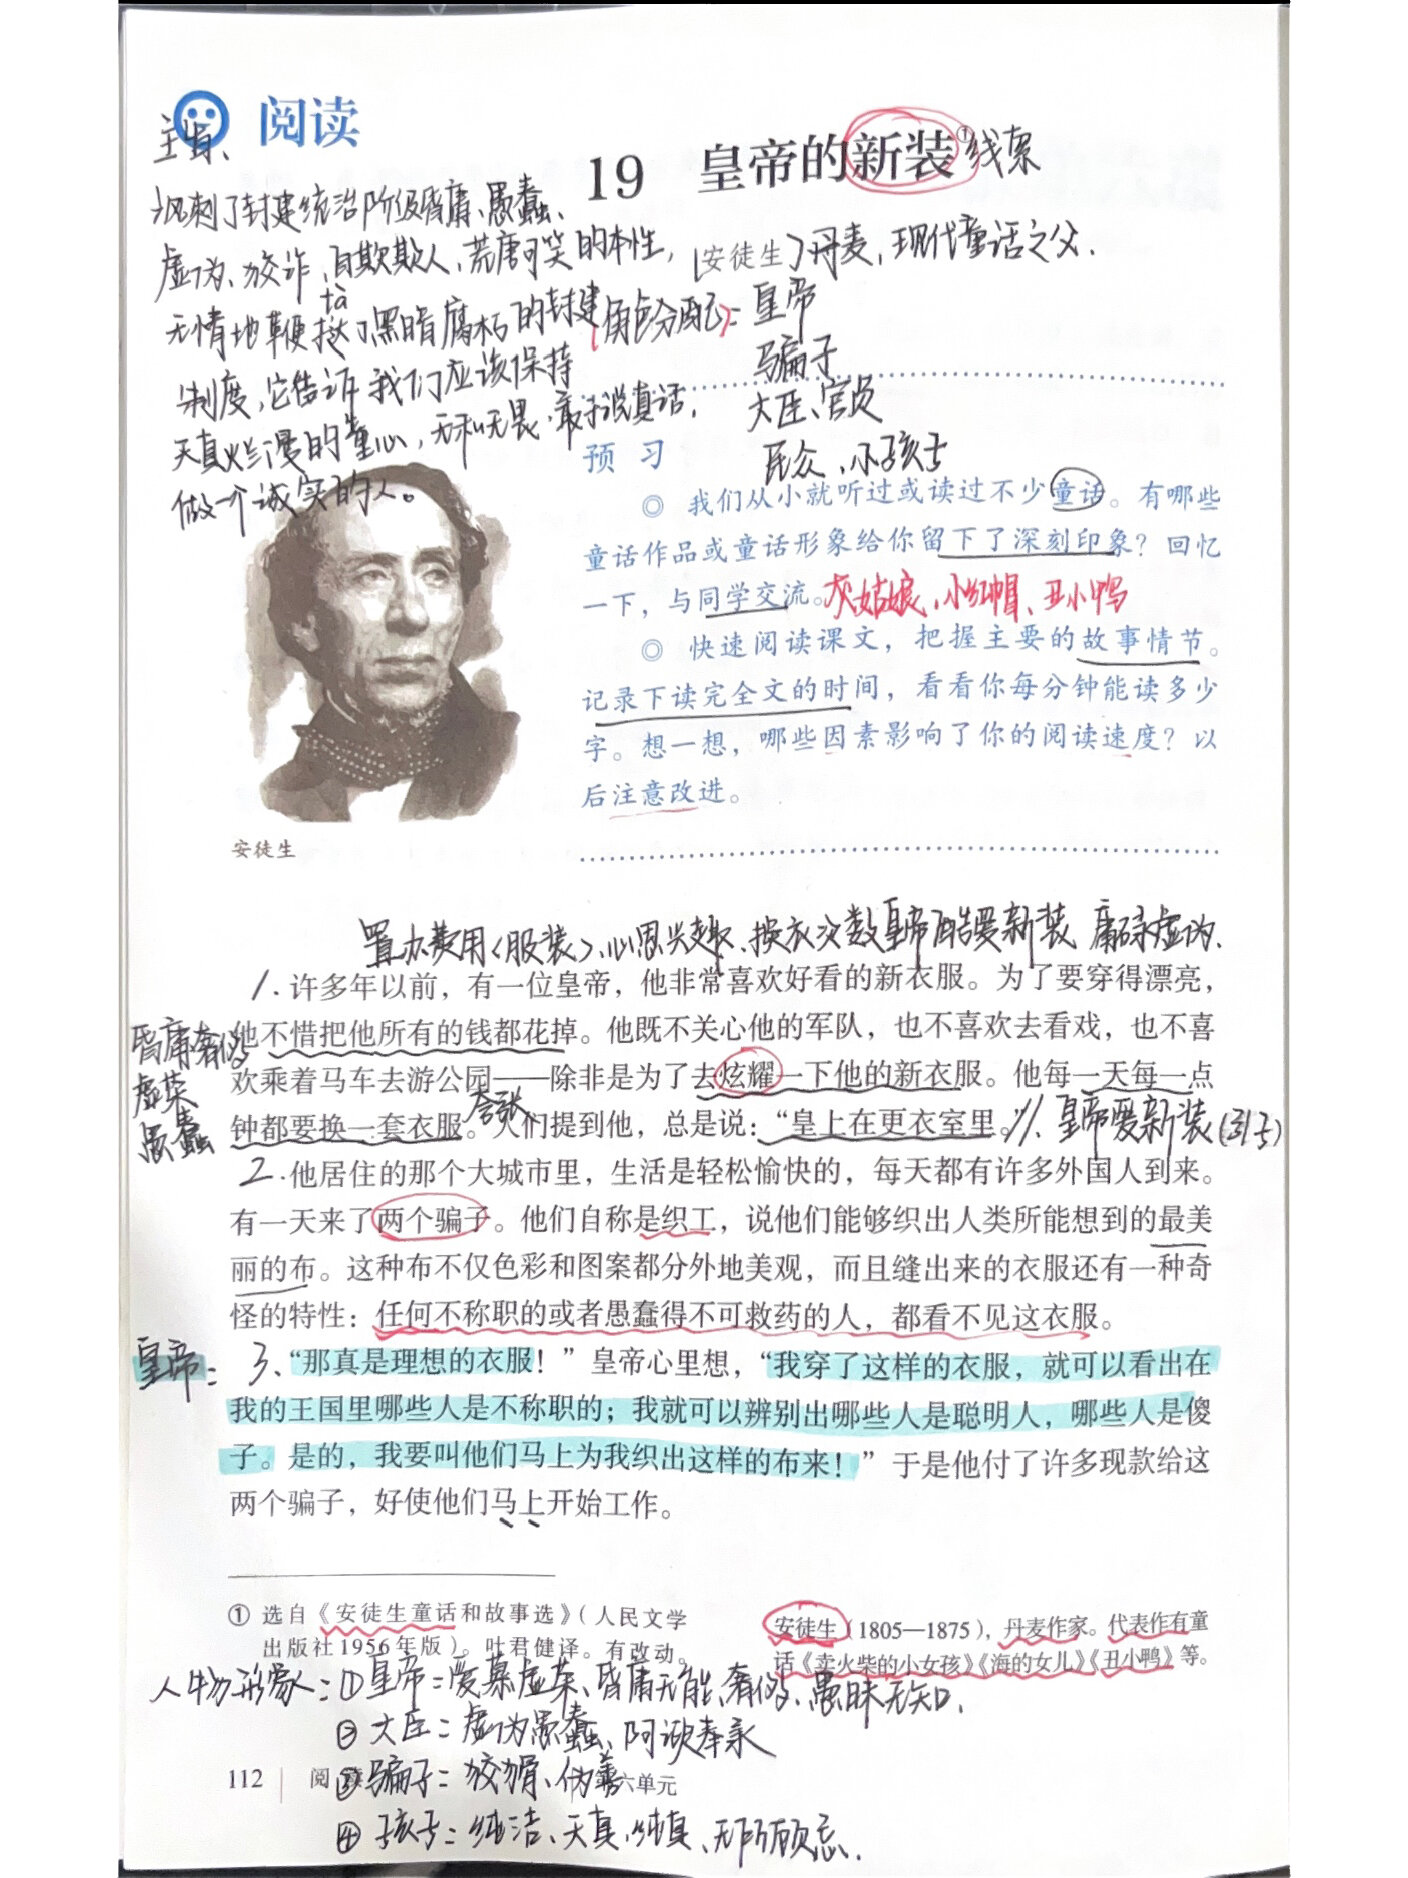 阅读
主旨、
19 皇帝的新装① 线索
讽刺了封建统治阶级昏庸、愚蠢、
虚伪、狡诈、自欺欺人、荒唐可笑的本性，
tà
无情地鞭挞了黑暗腐朽的封建
制度，它告诉我们应该保持
天真烂漫的童心，无私无畏，敢于说真话，
做一个诚实的人。
[安徒生]丹麦，现代童话之父．
角色分配：皇帝
骗子
大臣、官员
民众、小孩子
预习
◎ 我们从小就听过或读过不少童话。有哪些
童话作品或童话形象给你留下了深刻印象？回忆
一下，与同学交流。灰姑娘、小红帽、丑小鸭
◎ 快速阅读课文，把握主要的故事情节。
记录下读完全文的时间，看看你每分钟能读多少
字。想一想，哪些因素影响了你的阅读速度？以
后注意改进。
安徒生
置办费用〈服装〉、心思兴趣、换衣次数 皇帝酷爱新装 庸碌虚伪．
1.许多年以前，有一位皇帝，他非常喜欢好看的新衣服。为了要穿得漂亮，
他不惜把他所有的钱都花掉。他既不关心他的军队，也不喜欢去看戏，也不喜
欢乘着马车去游公园——除非是为了去炫耀一下他的新衣服。他每一天每一点
钟都要换一套衣服。人们提到他，总是说：“皇上在更衣室里。”
昏庸奢侈
虚荣
愚蠢
夸张
1、皇帝爱新装(引子)
2.他居住的那个大城市里，生活是轻松愉快的，每天都有许多外国人到来。
有一天来了两个骗子。他们自称是织工，说他们能够织出人类所能想到的最美
丽的布。这种布不仅色彩和图案都分外地美观，而且缝出来的衣服还有一种奇
怪的特性：任何不称职的或者愚蠢得不可救药的人，都看不见这衣服。
皇帝：
3、“那真是理想的衣服！”皇帝心里想，“我穿了这样的衣服，就可以看出在
我的王国里哪些人是不称职的；我就可以辨别出哪些人是聪明人，哪些人是傻
子。是的，我要叫他们马上为我织出这样的布来！”于是他付了许多现款给这
两个骗子，好使他们马上开始工作。
① 选自《安徒生童话和故事选》（人民文学
出版社1956年版）。叶君健译。有改动。
安徒生（1805—1875），丹麦作家。代表作有童
话《卖火柴的小女孩》《海的女儿》《丑小鸭》等。
人物形象：①皇帝：爱慕虚荣、昏庸无能、奢侈、愚昧无知．
②大臣：虚伪愚蠢、阿谀奉承
③骗子：狡猾、伪善
④孩子：纯洁、天真、纯真、无所顾忌．
112 阅 第六单元